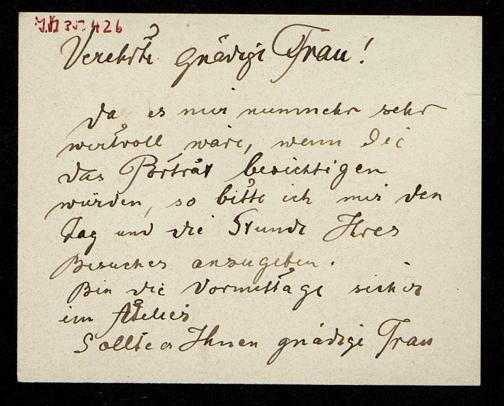 J.N 35.426
Verehrte gnädige Frau!
Da es mir nunmehr sehr
wertvoll wäre, wenn Sie
das Porträt besichtigen
würden, so bitte ich mir den
Tag und die Stunde Ihres
Besuches anzugeben.
Bin die Vormittage sicher
im Atelier
Sollte es Ihnen gnädige Frau